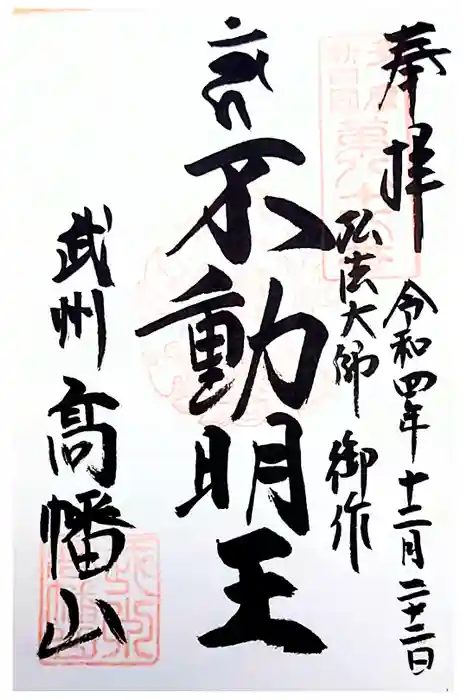 奉拝
令和四年十二月二十二日
弘法大師 御作
不動明王
武州 髙幡山